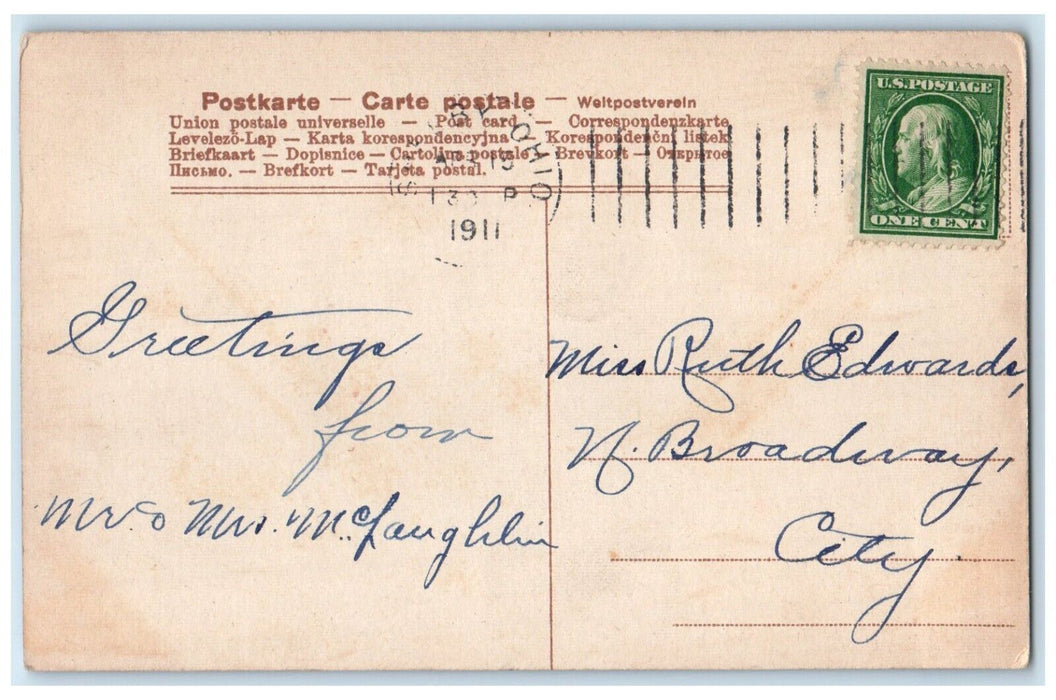 Postkarte — Carte postale — Weltpostverein
Union postale universelle — Post card — Correspondenzkarte
Levelező-Lap — Karta korespondencyjna — Korespondenční lístek
Briefkaart — Dopisnice — Cartolina postale — Brevkort — Открытое
Письмо. — Brefkort — Tarjeta postal.
U.S. POSTAGE
ONE CENT
OHIO
15
130 P
1911
Greetings
from
Mr. & Mrs. McLaughlin
Miss Ruth Edwards,
N. Broadway,
City.